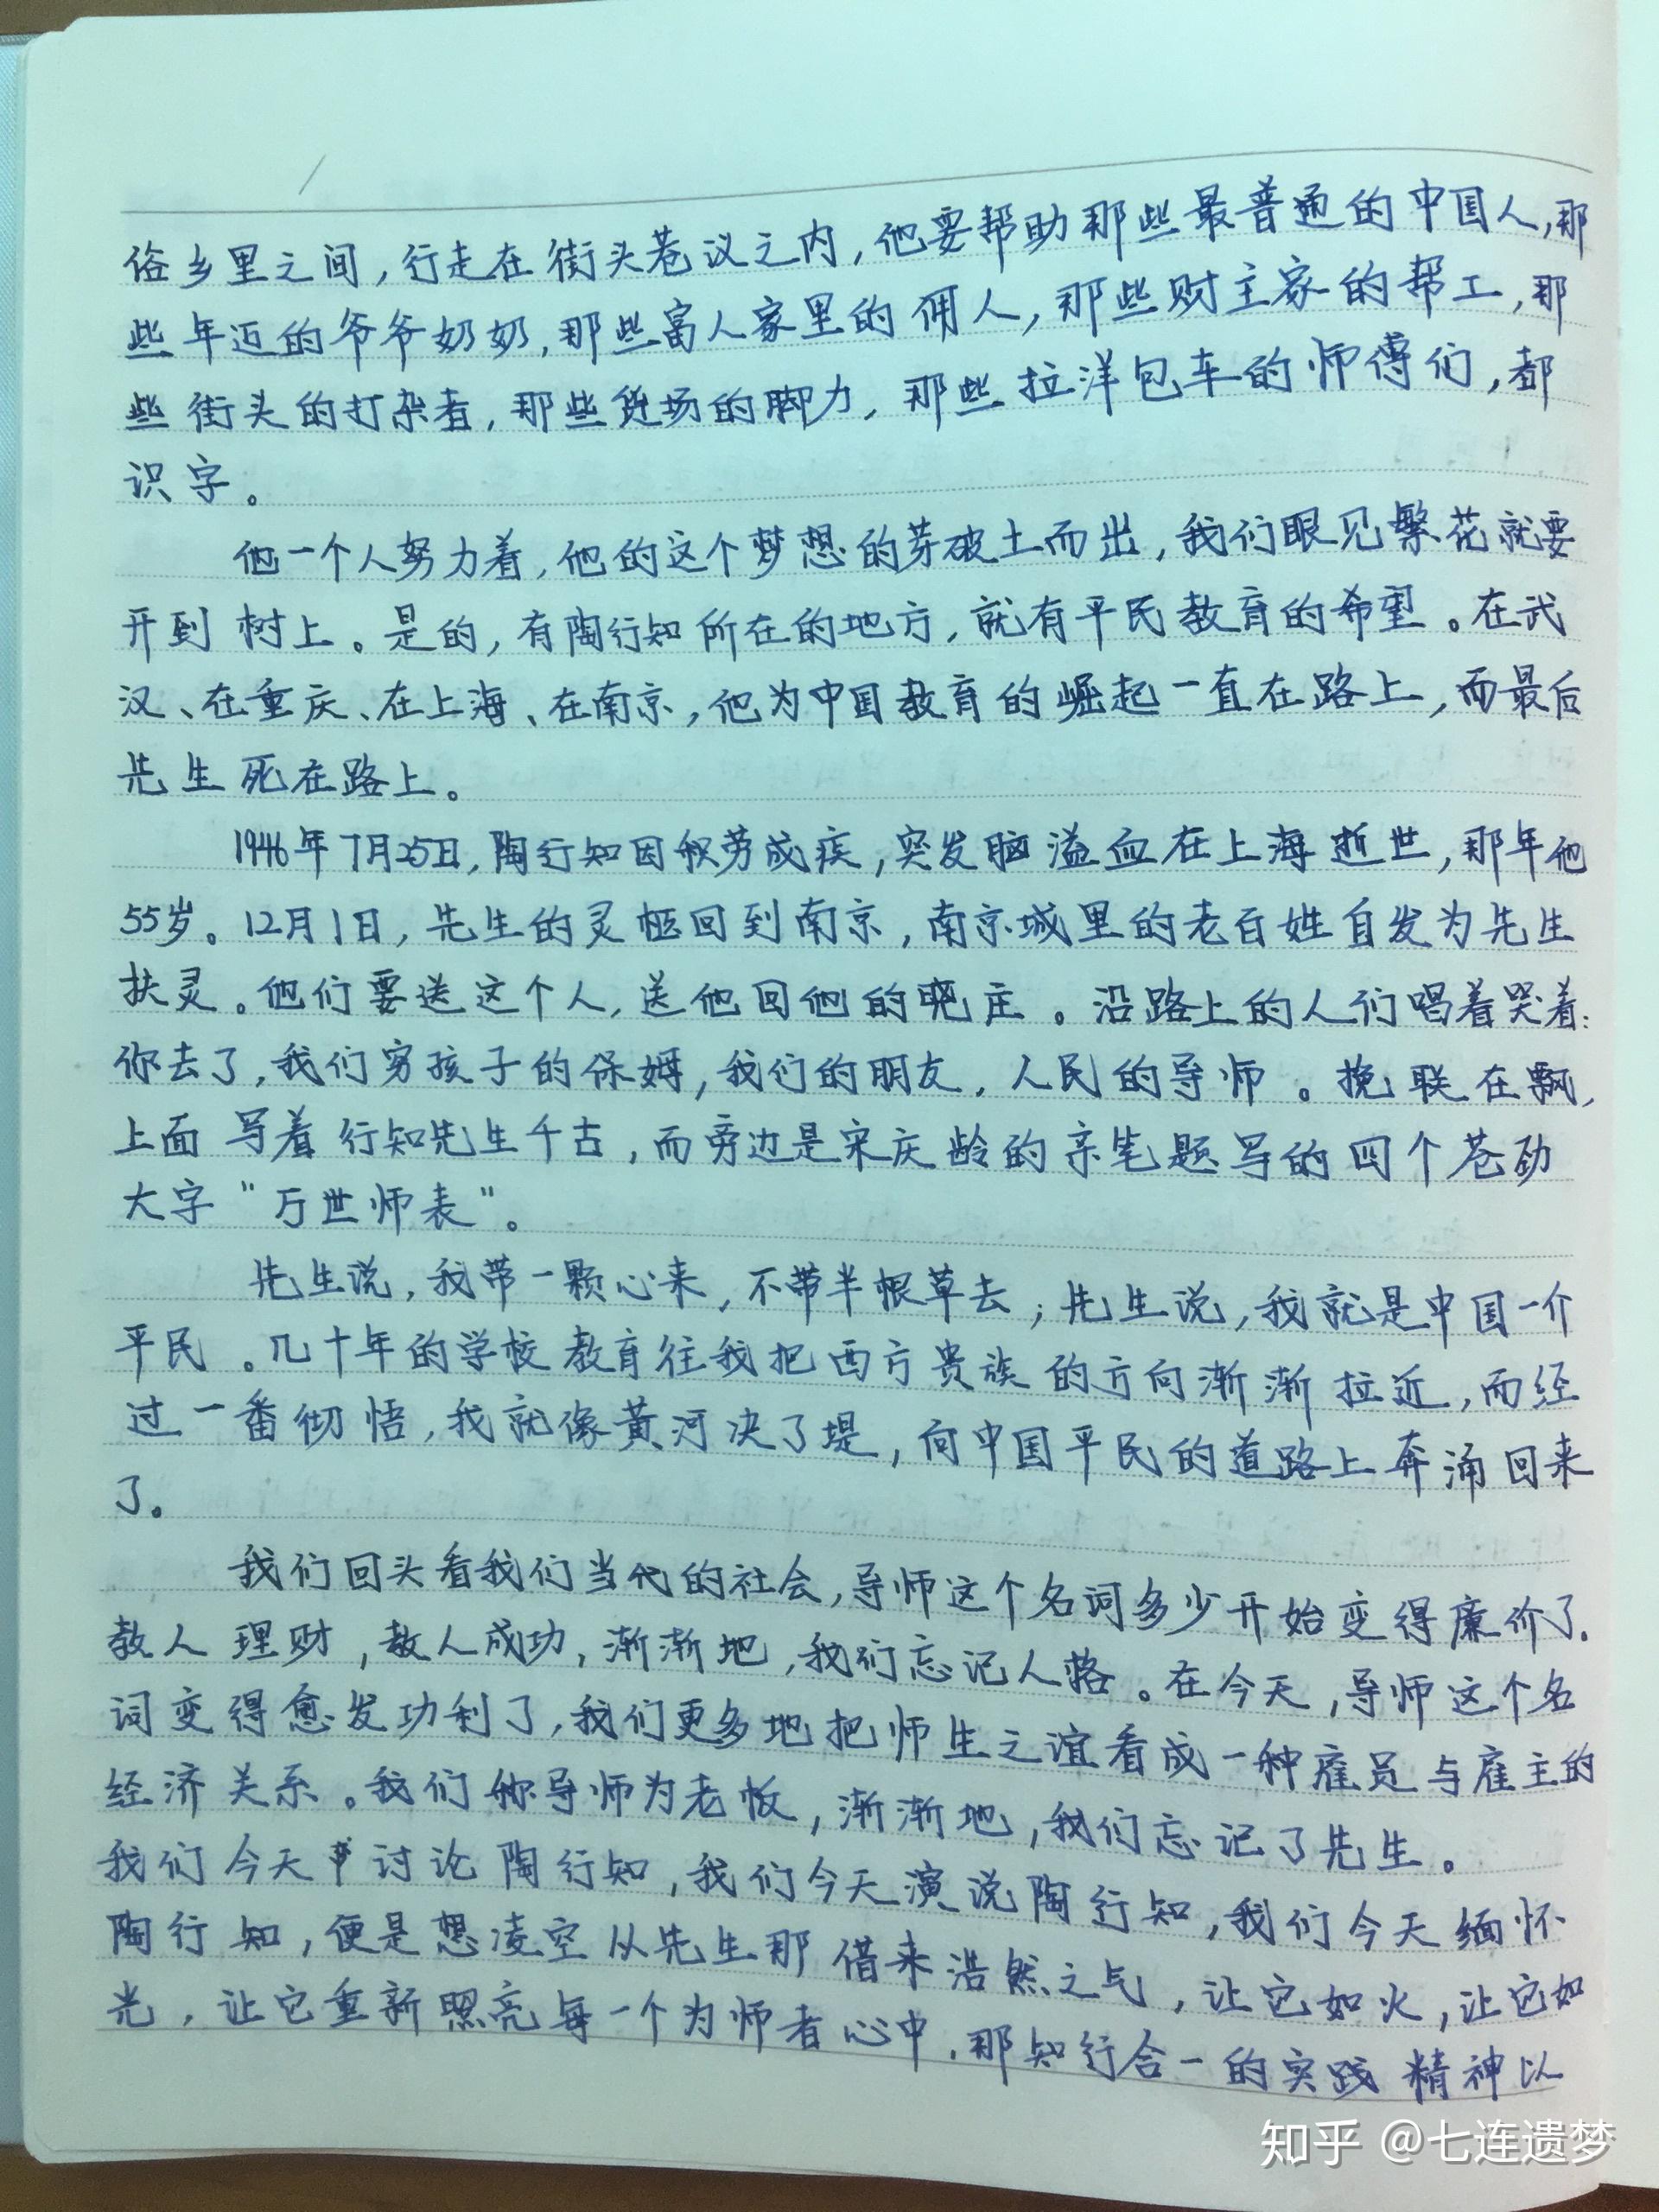 俗乡里之间，行走在街头巷议之内，他要帮助那些最普通的中国人，那
些年迈的爷爷奶奶，那些富人家里的佣人，那些财主家的帮工，那
些街头的打杂者，那些货场的脚力，那些拉洋包车的师傅们，都
识字。
他一个人努力着，他的这个梦想的芽破土而出，我们眼见繁花就要
开到树上。是的，有陶行知所在的地方，就有平民教育的希望。在武
汉、在重庆、在上海、在南京，他为中国教育的崛起一直在路上，而最后
先生死在路上。
1946年7月25日，陶行知因积劳成疾，突发脑溢血在上海逝世，那年他
55岁。12月1日，先生的灵柩回到南京，南京城里的老百姓自发为先生
扶灵。他们要送这个人，送他回他的晓庄。沿路上的人们唱着哭着：
你去了，我们穷孩子的保姆，我们的朋友，人民的导师。挽联在飘，
上面写着行知先生千古，而旁边是宋庆龄的亲笔题写的四个苍劲
大字“万世师表”。
先生说，我带一颗心来，不带半根草去；先生说，我就是中国一介
平民。几十年的学校教育往我把西方贵族的方向渐渐拉近，而经
过一番彻悟，我就像黄河决了堤，向中国平民的道路上奔涌回来
了。
我们回头看我们当代的社会，导师这个名词多少开始变得廉价了.
教人理财，教人成功，渐渐地，我们忘记人格。在今天，导师这个名
词变得愈发功利了，我们更多地把师生之谊看成一种雇员与雇主的
经济关系。我们称导师为老板，渐渐地，我们忘记了先生。
我们今天讨论陶行知，我们今天演说陶行知，我们今天缅怀
陶行知，便是想凌空从先生那借来浩然之气，让它如火，让它如
光，让它重新照亮每一个为师者心中，那知行合一的实践精神以
知乎 @七连遗梦